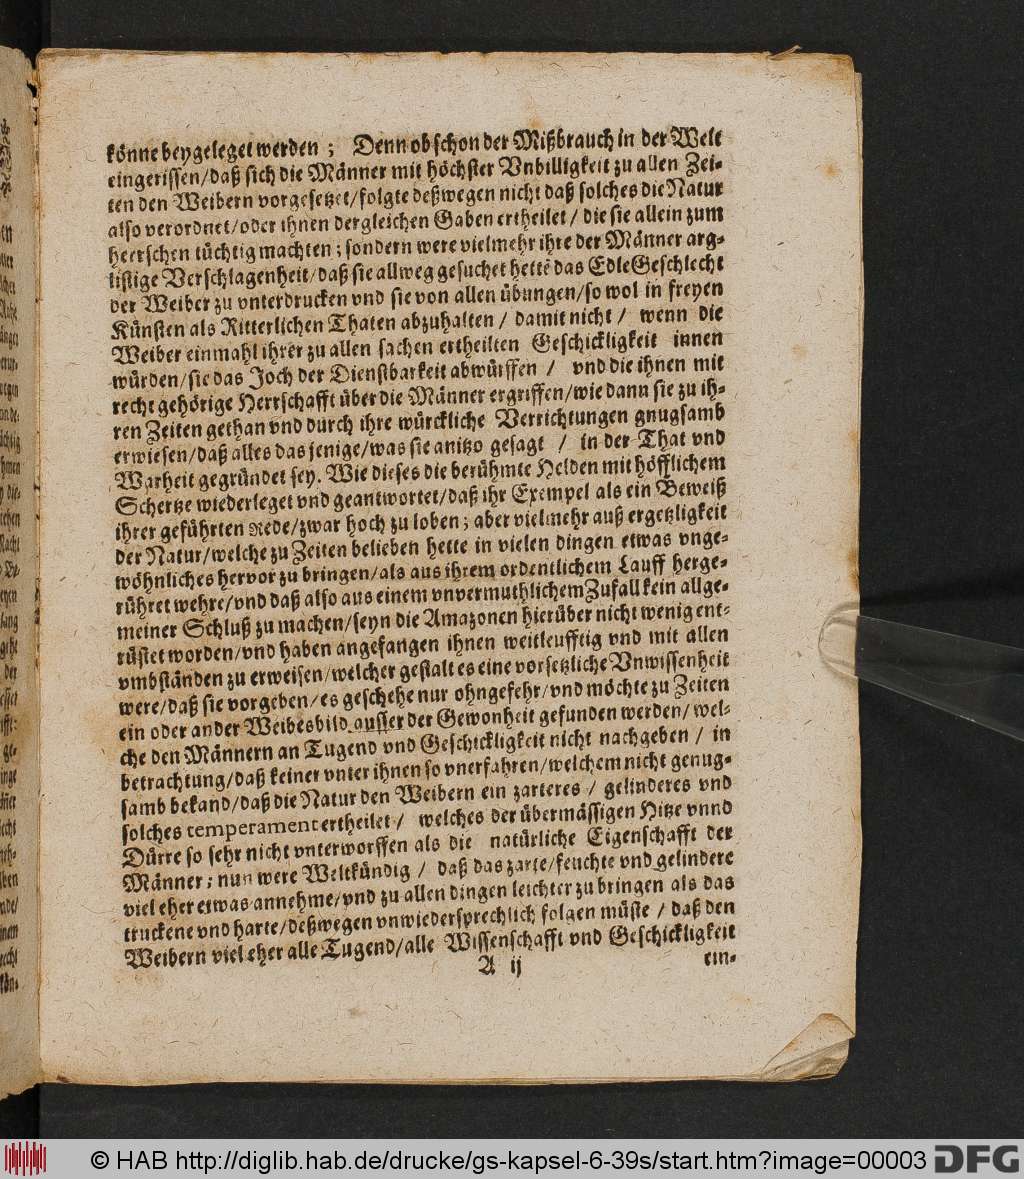 könne beygeleget werden ; Denn ob schon der Mißbrauch in der Welt
eingerissen/daß sich die Männer mit höchster Vnbilligkeit zu allen Zei-
ten den Weibern vorgesetzet/folgte deßwegen nicht daß solches die Natur
also verordnet/oder ihnen dergleichen Gaben ertheilet / die sie allein zum
heerschen tüchtig machten ; sondern were vielmehr ihre der Männer arg-
listige Verschlagenheit/daß sie allweg gesuchet hettē das Edle Geschlecht
der Weiber zu vnterdrucken vnd sie von allen übungen/so wol in freyen
Künsten als Ritterlichen Thaten abzuhalten / damit nicht / wenn die
Weiber einmahl ihrer zu allen sachen ertheilten Geschickligkeit innen
würden/sie das Joch der Dienstbarkeit abwürffen / vnd die ihnen mit
recht gehörige Herrschafft über die Männer ergriffen/wie dann sie zu ih-
ren Zeiten gethan vnd durch ihre würckliche Verrichtungen gnugsamb
erwiesen/daß alles das jenige/was sie anitzo gesagt / in der That vnd
Warheit gegründet sey. Wie dieses die berühmte Helden mit höfflichem
Schertze wiederleget vnd geantwortet/daß ihr Exempel als ein Beweiß
ihrer geführten Rede/zwar hoch zu loben; aber vielmehr auß ergetzligkeit
der Natur/welche zu Zeiten belieben hette in vielen dingen etwas vnge-
wöhnliches hervor zu bringen/als aus ihrem ordentlichem Lauff herge-
rühret wehre/vnd daß also aus einem vnvermuthlichem Zufall kein allge-
meiner Schluß zu machen/seyn die Amazonen hierüber nicht wenig ent-
rüstet worden/vnd haben angefangen ihnen weitleufftig vnd mit allen
vmbständen zu erweisen/welcher gestalt es eine vorsetzliche Vnwissenheit
were/daß sie vorgeben/es geschehe nur ohngefehr/vnd möchte zu Zeiten
ein oder ander Weibesbild ausser der Gewonheit gefunden werden/wel-
che den Männern an Tugend vnd Geschickligkeit nicht nachgeben / in
betrachtung/daß keiner vnter ihnen so vnerfahren/welchem nicht genug-
samb bekand/daß die Natur den Weibern ein zarteres / gelinderes vnd
solches temperament ertheilet / welches der übermässigen Hitze vnnd
Dürre so sehr nicht vnterworffen als die natürliche Eigenschafft der
Männer; nun were Weltkündig / daß das zarte/feuchte vnd gelindere
viel eher etwas annehme/vnd zu allen dingen leichter zu bringen als das
truckene vnd harte/deßwegen vnwiedersprechlich folgen müste / daß den
Weibern viel eher alle Tugend/alle Wissenschafft vnd Geschickligkeit
A ij ein-
© HAB http://diglib.hab.de/drucke/gs-kapsel-6-39s/start.htm?image=00003 DFG